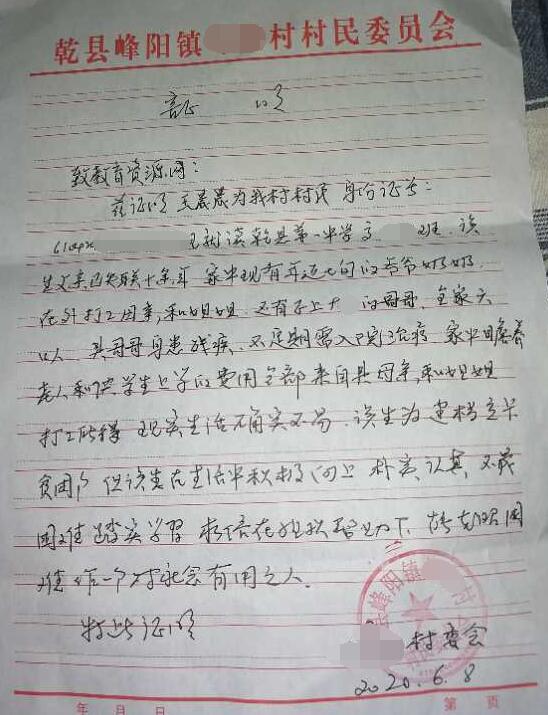 乾县峰阳镇 村村民委员会
证 明
致教育资源网:
兹证明 王晨晨为我村村民 身份证号:
现就读乾县第一中学高 班. 该
生父亲已失联十余年 家中现有年近七旬的爷爷奶奶.
在外打工母亲,和姐姐. 还有在上大 的哥哥. 全家六
口人 其哥哥身患残疾. 不定期需入院治疗 家中赡养
老人和供学生上学的费用全部来自其母亲,和姐姐
打工所得 现实生活确实不易. 该生为建档立卡
贫困户 但该生在生活中积极向上 朴实、认真, 不畏
困难 踏实学习 相信在她 努力下. 能克服困
难 作一个对社会有用之人.
特此证明
县峰阳镇 村
村委会
2020.6.8
年 月 日 第 页